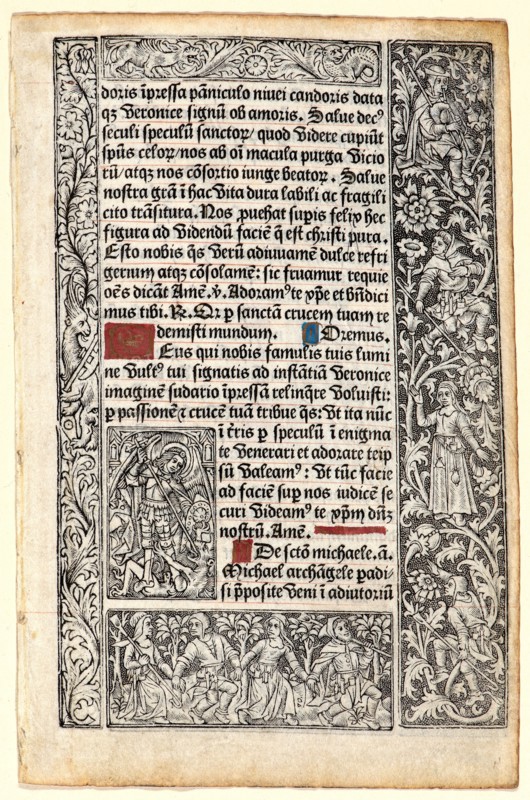 doris īpressa pāniculo niuei candoris data
qȝ Veronice signū ob amoris. Salue dec⁹
seculi speculū sanctoꝝ/ quod Videre cupiūt
spūs celoꝝ/ nos ab oī macula purga Vicio
rū/ atqȝ nos cōsortio iunge beatoꝝ. Salue
nostra grā ī hac Vita dura labili ac fragili
cito trāsitura. Nos ꝓuehat supis felix hec
figura ad Videndū faciē q̄ est christi pura.
Esto nobis q̄s Verū adiuuamē dulce refri
gerium atqȝ cōsolamē: sic fruamur requie
oēs dicāt Amē. ℣. Adoram⁹ te xp̄e et bn̄dici
mus tibi. ℟. Qr ꝑ sanctā crucem tuam re
demisti mundum. Oremus.
Eus qui nobis famulis tuis lumi
ne Vult⁹ tui signatis ad instātiā Veronice
imaginē sudario īpressā relinqre Voluisti:
ꝑ passionē ⁊ crucē tuā tribue q̄s: Vt ita nūc
ī t̄ris ꝑ speculū ī enigma
te Venerari et adorare teip
sū Valeam⁹: Vt tūc facie
ad faciē sup nos iudicē se
curi Videam⁹ te xp̄m dn̄ȝ
nostrū. Amē.
De sctō michaele. ā.
Michael archāgele padi
si p̄posite Veni ī adiutoriū